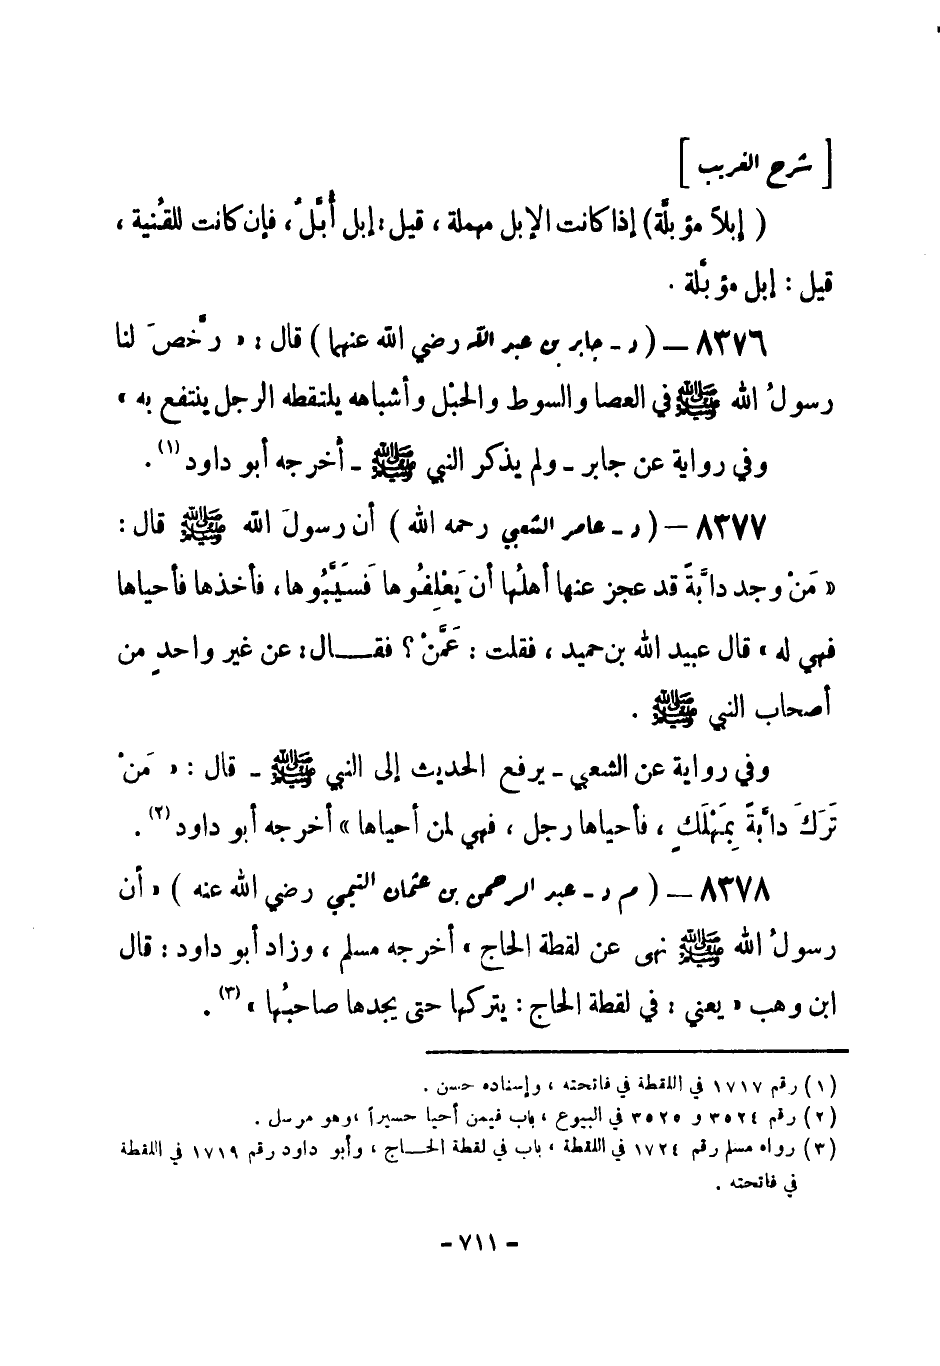 [ شرح الغريب ]
( إبلاً مؤبلَّة) إذا كانت الإبل مهملة ، قيل : إبل أُبَّلٌ ، فإن كانت للقُنية ،
قيل : إبل مؤبَّلة .
٨٣٧٦ – ( د - جابر بن عبد الله رضي الله عنهما ) قال : « رخَّصَ لنا
رسولُ الله ﷺ في العصا والسوط والحبْل وأشباهه يلتقطه الرجل ينتفع به »
وفي رواية عن جابر - ولم يذكر النبي ﷺ - أخرجه أبو داود (١) .
٨٣٧٧ – ( د - عامر الشعبي رحمه الله ) أن رسولَ الله ﷺ قال :
« مَنْ وجد دابَّةً قد عجز عنها أهلُها أن يَعْلِفُوها فَسيَّبُوها ، فأخذها فأحياها
فهي له » قال عبيد الله بن حميد ، فقلت : عَمَّنْ ؟ فقــال : عن غير واحدٍ من
أصحاب النبي ﷺ .
وفي رواية عن الشعبي - يرفع الحديث إلى النبي ﷺ - قال : « مَنْ
تَرَكَ دابَّةً بِمَهْلَكٍ ، فأحياها رجل ، فهي لمن أحياها » أخرجه أبو داود (٢) .
٨٣٧٨ – ( م د - عبد الرحمن بن عثمان التيمي رضي الله عنه ) « أن
رسولُ الله ﷺ نهى عن لقطة الحاج » أخرجه مسلم ، وزاد أبو داود : قال
ابن وهب « يعني : في لقطة الحاج : يتركها حتى يجدها صاحبُها » (٣) .
(١) رقم ١٧١٧ في اللقطة في فاتحته ، وإسناده حسن .
(٢) رقم ٣٥٢٤ و ٣٥٢٥ في البيوع ، باب فيمن أحيا حسيراً ، وهو مرسل .
(٣) رواه مسلم رقم ١٧٢٤ في اللقطة ، باب في لقطة الحــاج ، وأبو داود رقم ١٧١٩ في اللقطة
في فاتحته .
- ٧١١ -